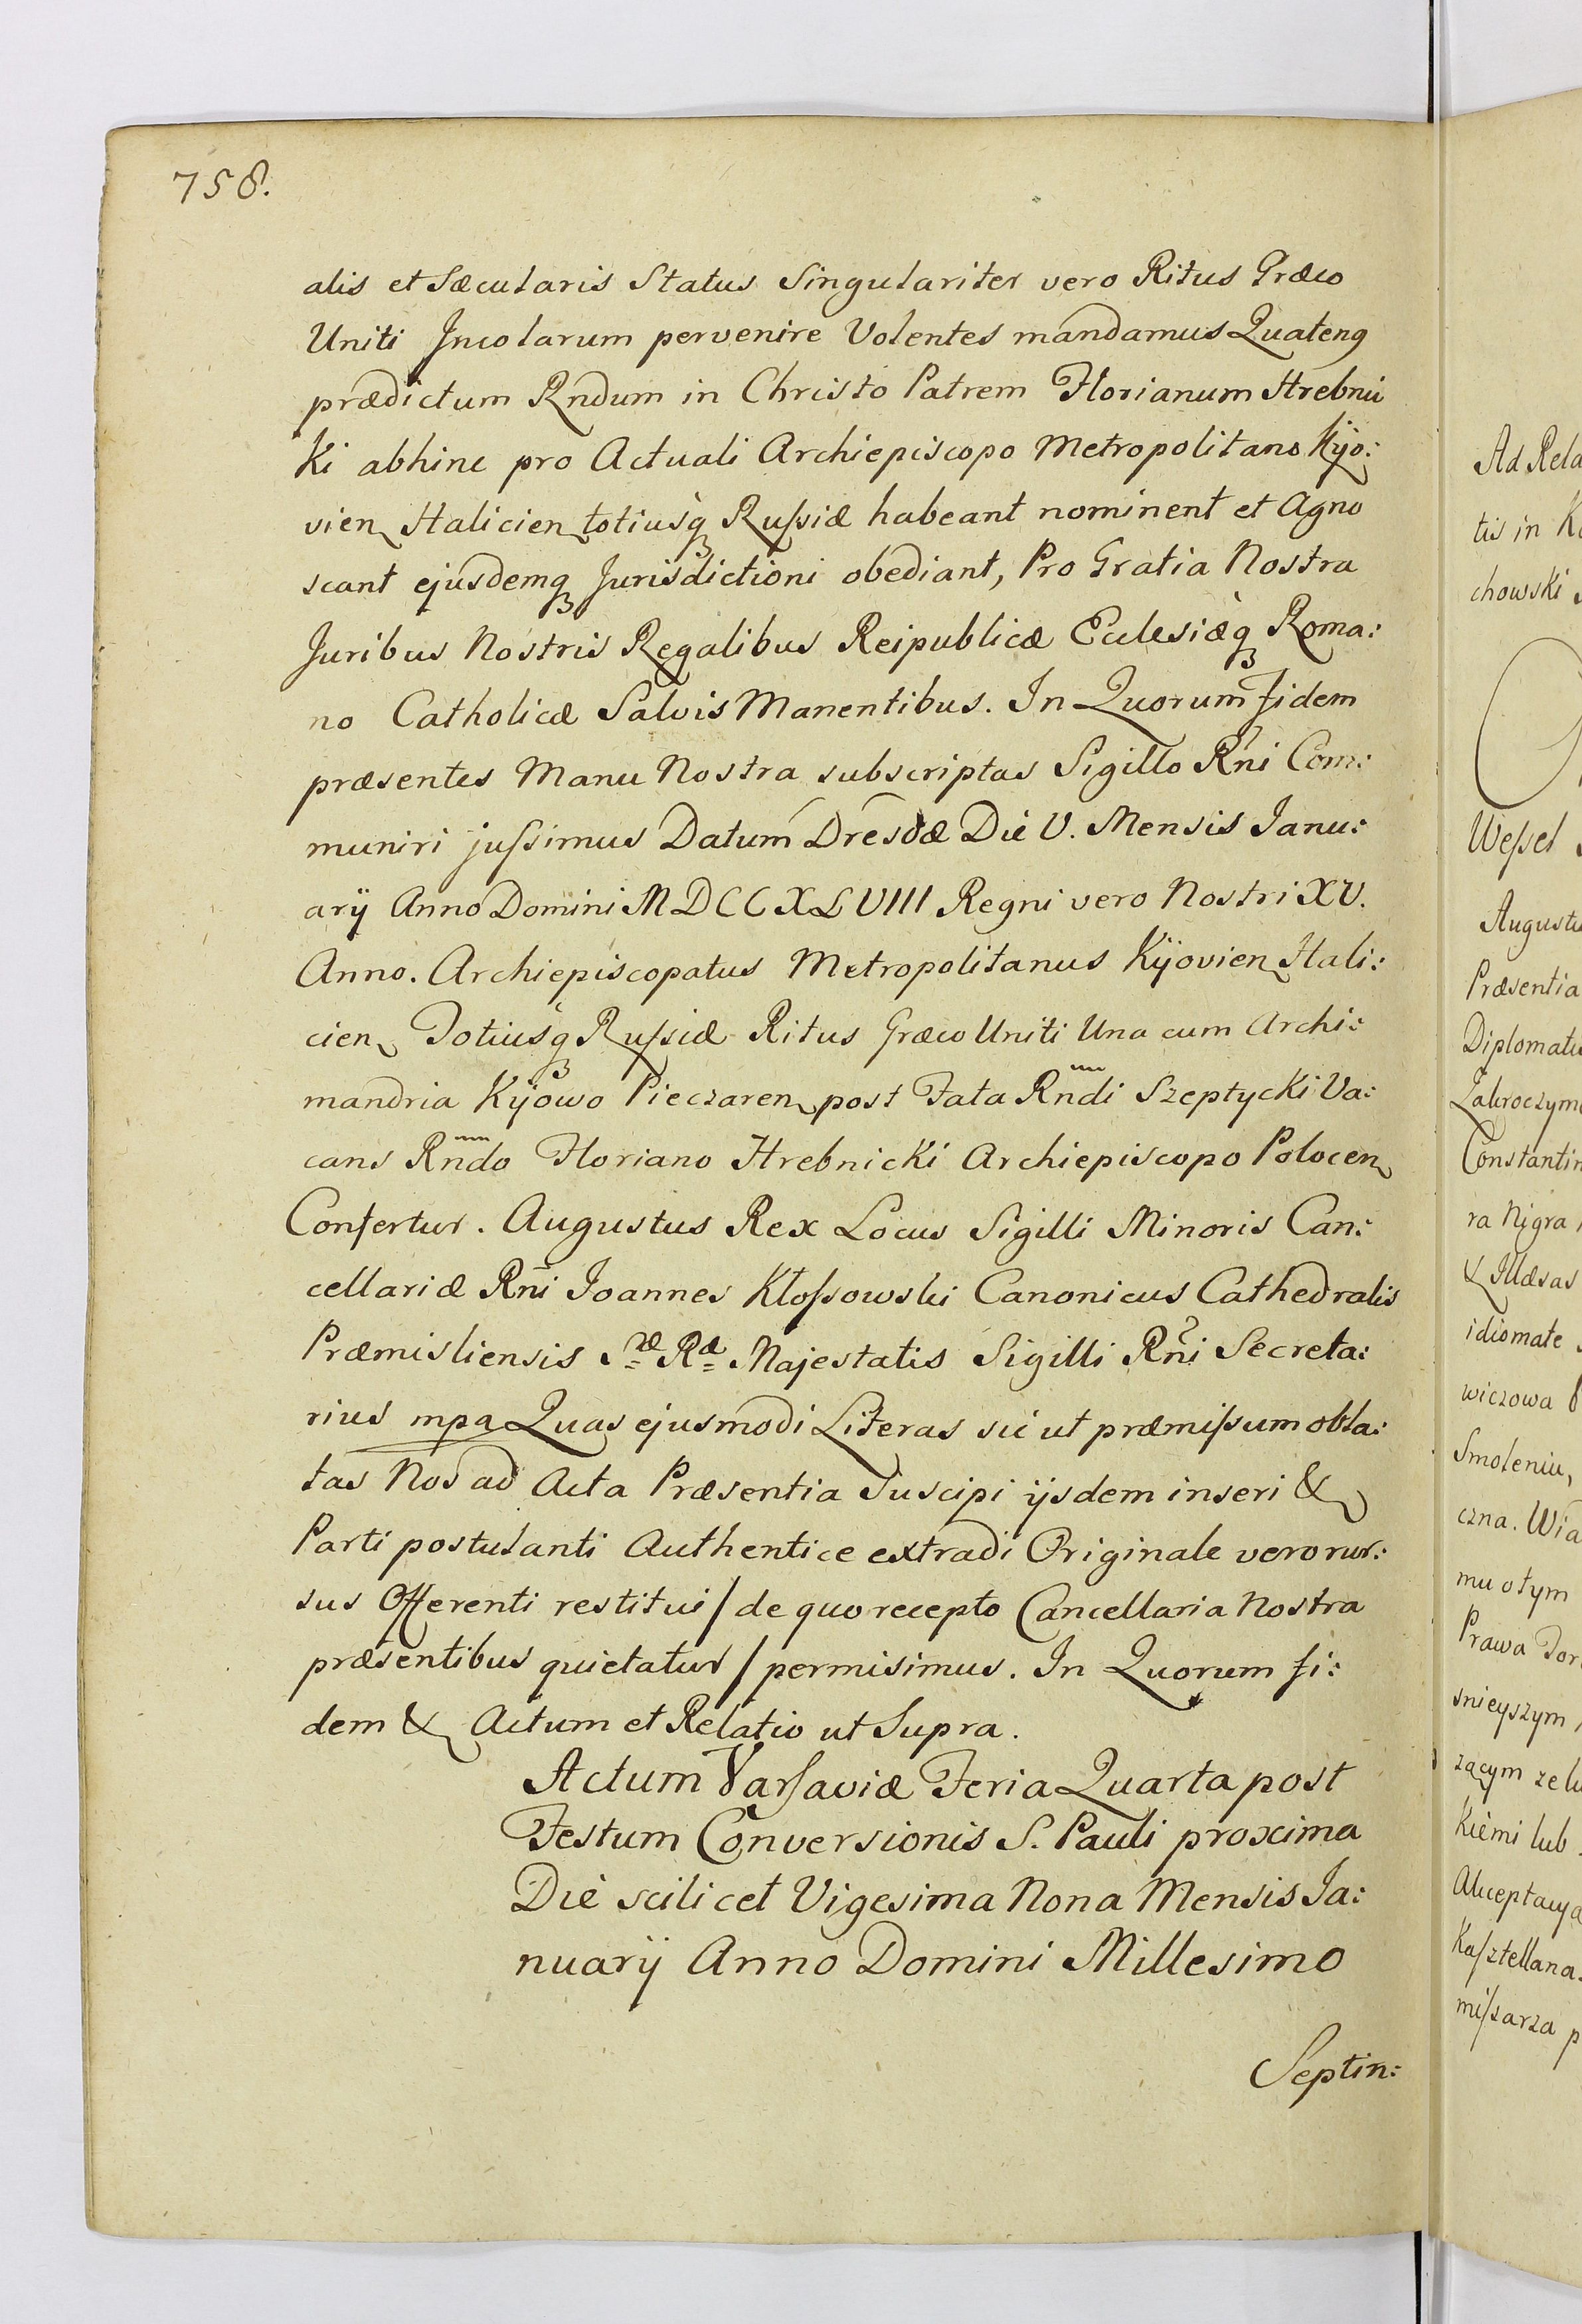 758.
alis et Sæcularis Status Singulariter vero Ritus Græco
Uniti Incolarum pervenire Volentes mandamus Quatenꝯ
prædictum Rndum in Christo Patrem Florianum Hrebnic
Ki abhinc pro Actuali Archiepiscopo Metropolitano Kijo:
vien Halicien totiusq̀ꝫ Ruſsiæ habeant nominent et Agno
scant ejusdemqꝫ Jurisdictioni obediant, Pro Gratia Nostra
Juribus Nostris Regalibus Reipublicæ Ecclesiæq̀ꝫ Roma:
no Catholicæ Salvis Manentibus. In Quorum Fidem
præsentes Manu Nostra subscriptas Sigillo Rni Com:
muniri juſsimus Datum Dresdæ Die V. Mensis Janu:
arij Anno Domini MDCCXLVIII Regni vero Nostri XV.
Anno. Archiepiscopatus Metropolitanus Kijovien Hali:
cien Totiusq̀ꝫ Ruſsiæ Ritus Græco Uniti Una cum Archi:
mandria Kijowo Pieczaren post Fata Rndi Szeptycki Va:
cans Rndo Floriano Hrebnicki Archiepiscopo Polocen
Confertur. Augustus Rex Locus Sigilli Minoris Can:
cellariæ Rni Joannes Kloſsowski Canonicus Cathedralis
Præmisliensis Sæ Ræ Majestatis Sigilli Rni Secreta:
rius mpa Quas ejusmodi Literas sic ut præmiſsum obla:
tas Nos ad Acta Præsentia Suscipi ijsdem inseri &
Parti postulanti Authentice extradi Originale vero rur:
sus Offerenti restitui / de quo recepto Cancellaria Nostra
præsentibus quietatur / permisimus. In Quorum fi:
dem & Actum et Relatio ut Supra.
Actum Varſaviæ Feria Quarta post
Festum Conversionis S. Pauli proxima
Die scilicet Vigesima Nona Mensis Ja:
nuarij Anno Domini Millesimo
Septin:
Ad Rela
tis in K
chowski
Weſsel
Augustu
Præsentia
Diplomatis
Zakroczym
Constantin
ra Nigra
& Illæsas
idiomate
wiczowa
Smoleniu,
czna. Wia
mu otym
Prawa Tor
snieyszym
zącym zelu
Kiemi lub
Akceptacya
Kaſztellana
miſsarza p